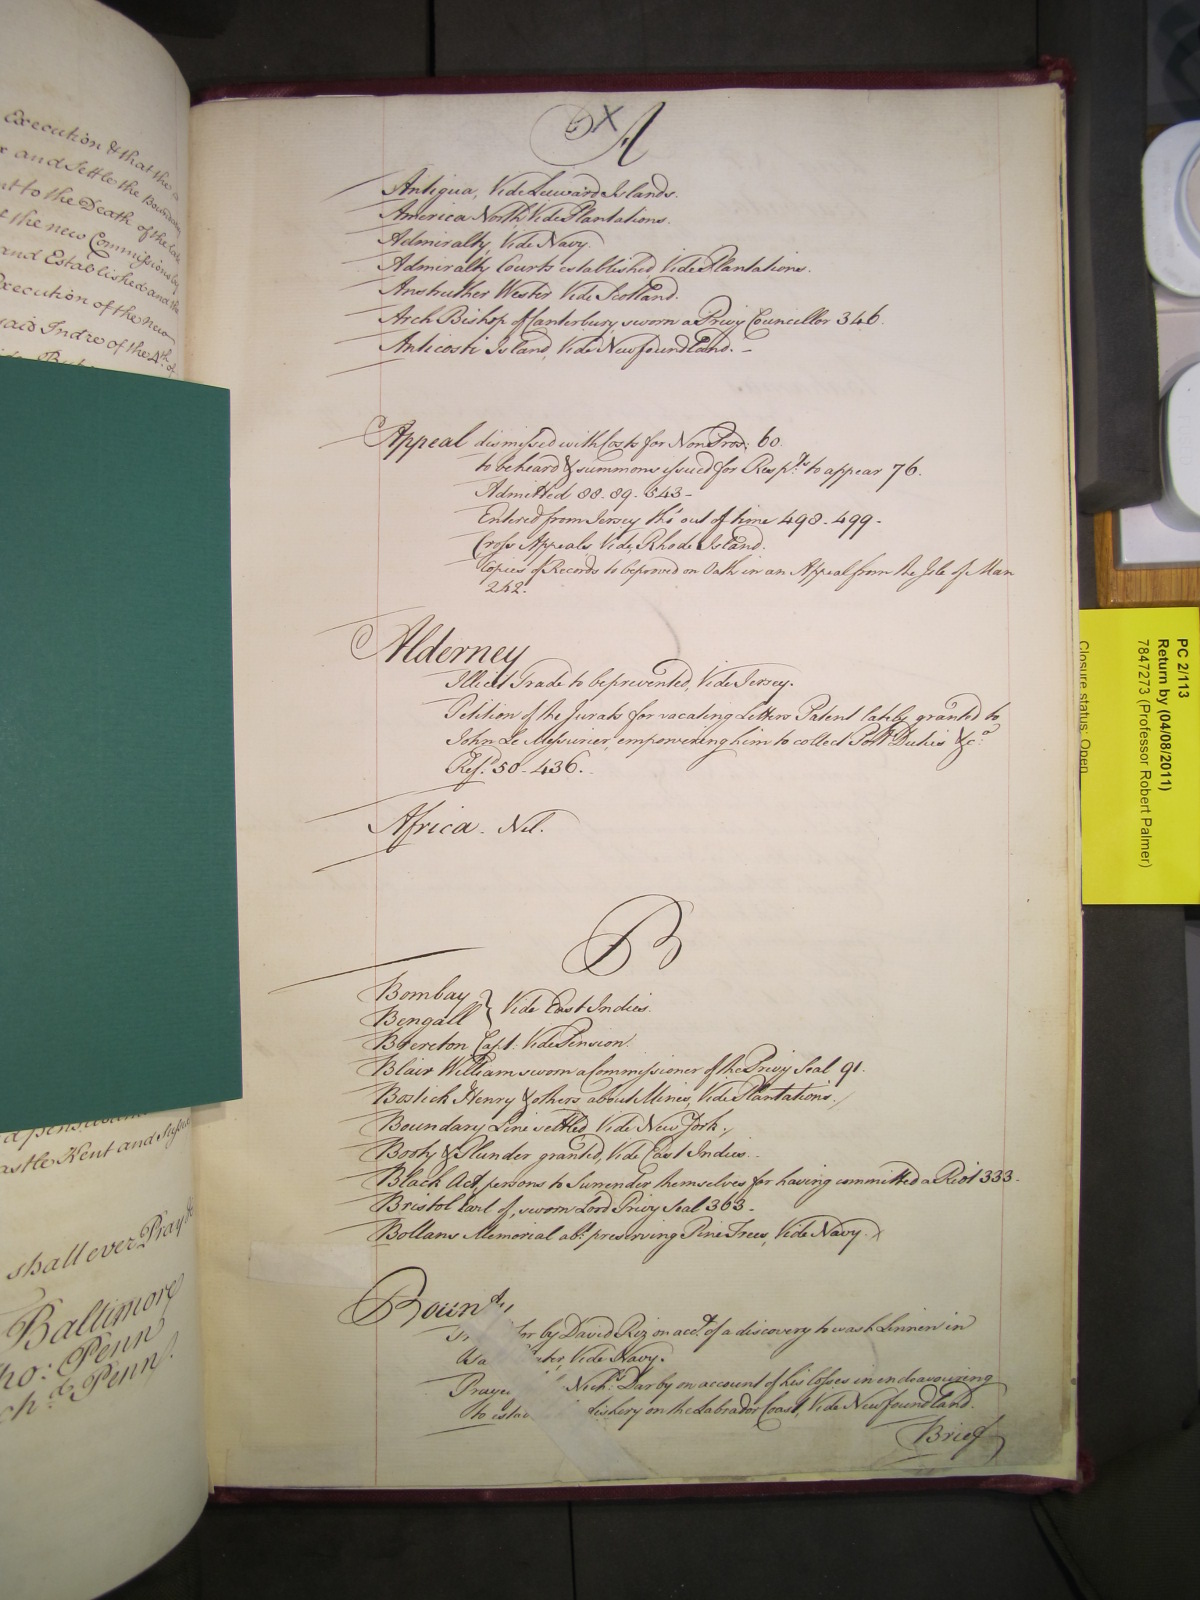 Execution & that the
x and Settle the Boundary
nt to the Death of the late
t the new Commissions by
and Established and the
Execution of the new
said Indre of the 4th of
astle Kent and
shall ever Pray &c
Baltimore
ho: Penn
chd Penn.
X
A
Antigua, Vide Leeward Islands.
America North, Vide Plantations.
Admiralty, Vide Navy.
Admiralty Courts established, Vide Plantations.
Anstruther Wester Vide Scotland.
Arch Bishop of Canterbury, sworn a Privy Councillor 346.
Anticosti Island, Vide Newfoundland. -
Appeal dismissed with Costs for Non Pros: 60.
to be heard & summons issued for Respts. to appear 76.
Admitted 88. 89. 543 -
Entered from Jersey tho' out of time 498. 499 -
Cross Appeals Vide, Rhode Island.
Copies of Records to be proved on Oath in an Appeal from the Isle of Man
242.
Alderney
Illicit Trade to be prevented, Vide Jersey.
Petition of the Jurats for vacating Letters Patent lately granted to
John Le Mesurier, empowering him to collect Port Duties &ca
Refd. 50 - 436.
Africa. Nil.
B
Bombay
Bengall } Vide East Indies.
Brereton Capt. Vide Pension.
Blair William sworn a Commissioner of the Privy Seal 91.
Bostick Henry & others about Mines, Vide Plantations.
Boundary Line settled, Vide New York.
Booty & Plunder granted, Vide East Indies.
Black Act, persons to Surrender themselves for having committed a Riot 333 -
Bristol Earl of, sworn Lord Privy Seal 363 -
Bollans Memorial abt. preserving Pine Trees, Vide Navy.
Bounty
for by David Riz on acct. of a discovery to wash Linnen in
Vide Navy.
Nichs. Darby on account of his losses in endeavouring
to fishery on the Labrador Coast, Vide Newfoundland.
Brief
PC 2/113
Return by (04/08/2011)
7847273 (Professor Robert Palmer)
Closure status: Open